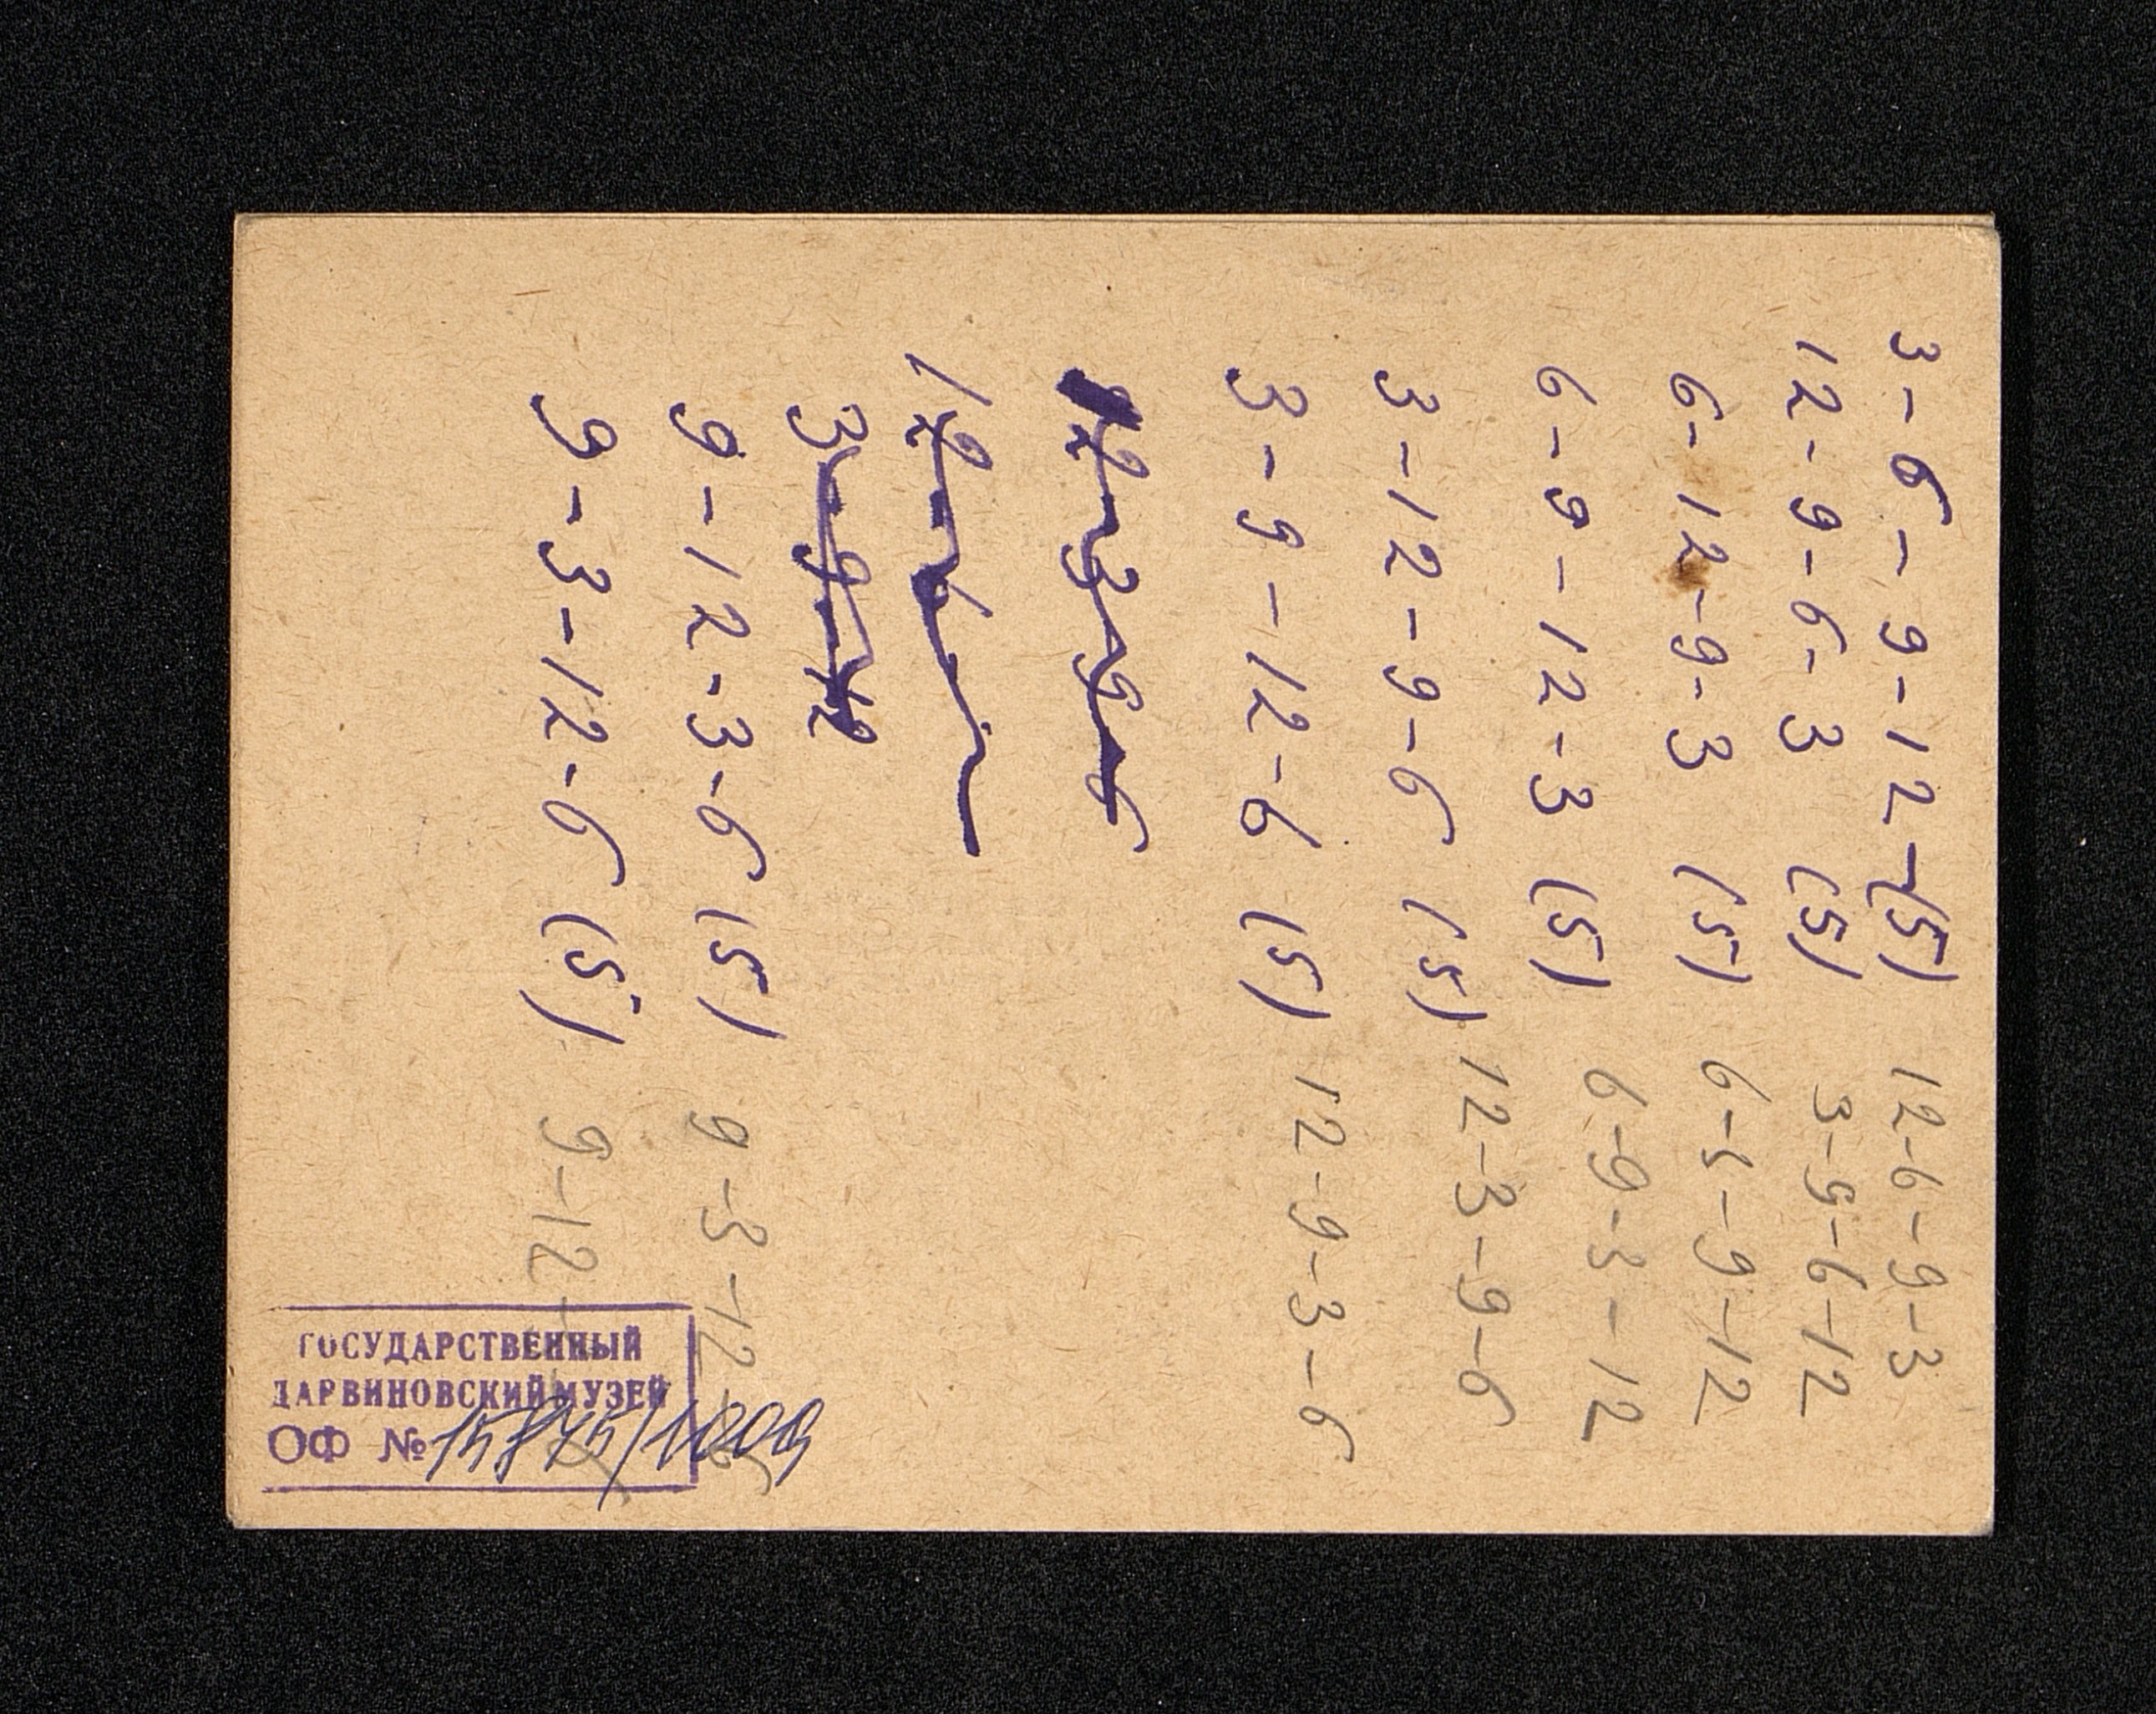 3-6-9-12-(5) 12-6-9-3
12-9-6-3 (5) 3-9-6-12
6-12-9-3 (5) 6-3-9-12
6-9-12-3 (5) 6-9-3-12
3-12-9-6 (5) 12-3-9-6
3-9-12-6 (5) 12-9-3-6
12-3-9-6
12-6-
3-9-12
9-12-3-6 (5) 9-3-12-6
9-3-12-6 (5) 9-12
ГОСУДАРСТВЕННЫЙ
ДАРВИНОВСКИЙ МУЗЕЙ
ОФ №